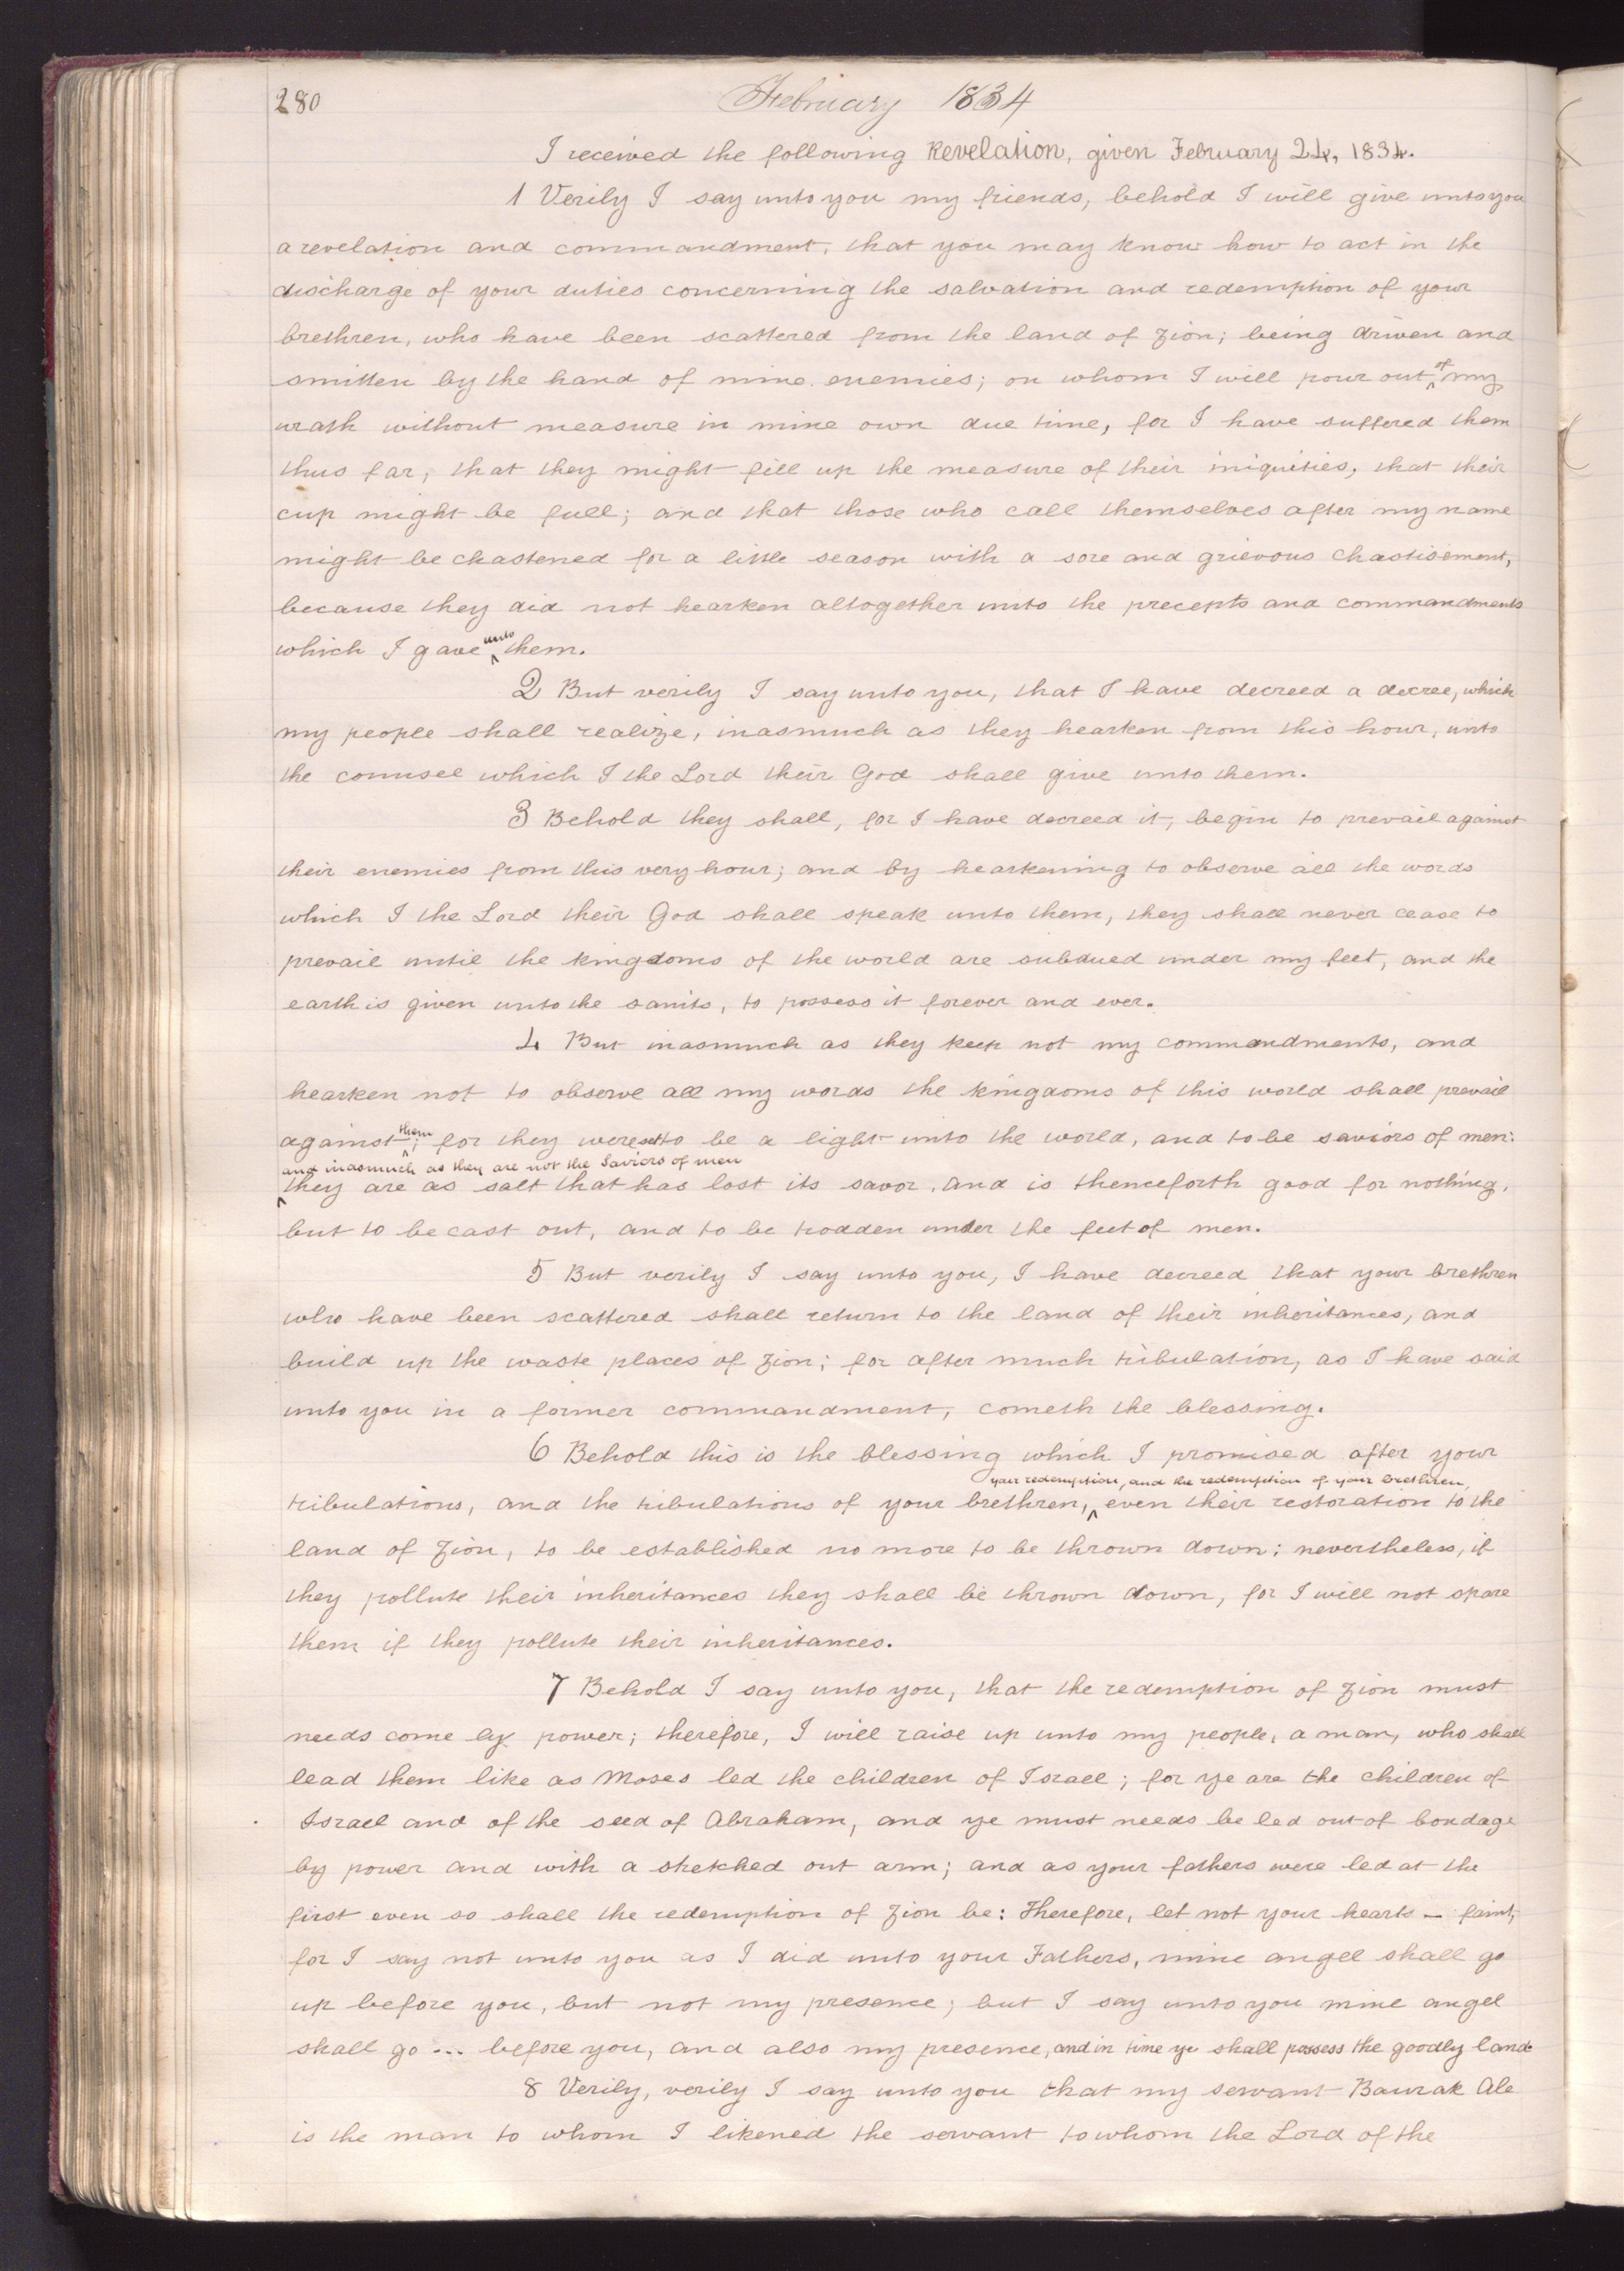 280
February 1834
I received the following Revelation, given February 24, 1834.
1 Verily I say unto you my friends, behold I will give unto you
a revelation and commandment, that you may know how to act in the
discharge of your duties concerning the salvation and redemption of your
brethren, who have been scattered from the land of Zion; being driven and
smitten by the hand of mine enemies; on whom I will pour out ^of my
wrath without measure in mine own due time, for I have suffered them
thus far, that they might fill up the measure of their iniquities, that their
cup might be full; and that those who call themselves after my name
might be chastened for a little season with a sore and grievous chastisement,
because they did not hearken altogether unto the precepts and commandments
which I gave ^unto them.
2 But verily I say unto you, that I have decreed a decree, which
my people shall realize, inasmuch as they hearken from this hour, unto
the counsel which I the Lord their God shall give unto them.
3 Behold they shall, for I have decreed it, begin to prevail against
their enemies from this very hour; and by hearkening to observe all the words
which I the Lord their God shall speak unto them, they shall never cease to
prevail until the kingdoms of the world are subdued under my feet, and the
earth is given unto the saints, to possess it forever and ever.
4 But inasmuch as they keep not my commandments, and
hearken not to observe all my words the kingdoms of this world shall prevail
against ^them; for they were set to be a light unto the world, and to be saviors of men:
and inasmuch as they are not the Saviors of men
^they are as salt that has lost its savor, and is thenceforth good for nothing,
but to be cast out, and to be trodden under the feet of men.
5 But verily I say unto you, I have decreed that your brethren
who have been scattered shall return to the land of their inheritances, and
build up the waste places of Zion; for after much tribulation, as I have said
unto you in a former commandment, cometh the blessing.
6 Behold this is the blessing which I promised after your
your redemption, and the redemption of your brethren,
tribulations, and the tribulations of your brethren, ^ even their restoration to the
land of Zion, to be established no more to be thrown down; nevertheless, if
they pollute their inheritances they shall be thrown down, for I will not spare
them if they pollute their inheritances.
7 Behold I say unto you, that the redemption of Zion must
needs come by power; therefore, I will raise up unto my people, a man, who shall
lead them like as Moses led the children of Israel; for ye are the children of
Israel and of the seed of Abraham, and ye must needs be led out of bondage
by power and with a stretched out arm; and as your fathers were led at the
first even so shall the redemption of Zion be: Therefore, let not your hearts — faint,
for I say not unto you as I did unto your Fathers, mine angel shall go
up before you, but not my presence; but I say unto you mine angel
shall go ... before you, and also my presence, and in time ye shall possess the goodly land
8 Verily, verily I say unto you that my servant Baurak Ale
is the man to whom I likened the servant to whom the Lord of the